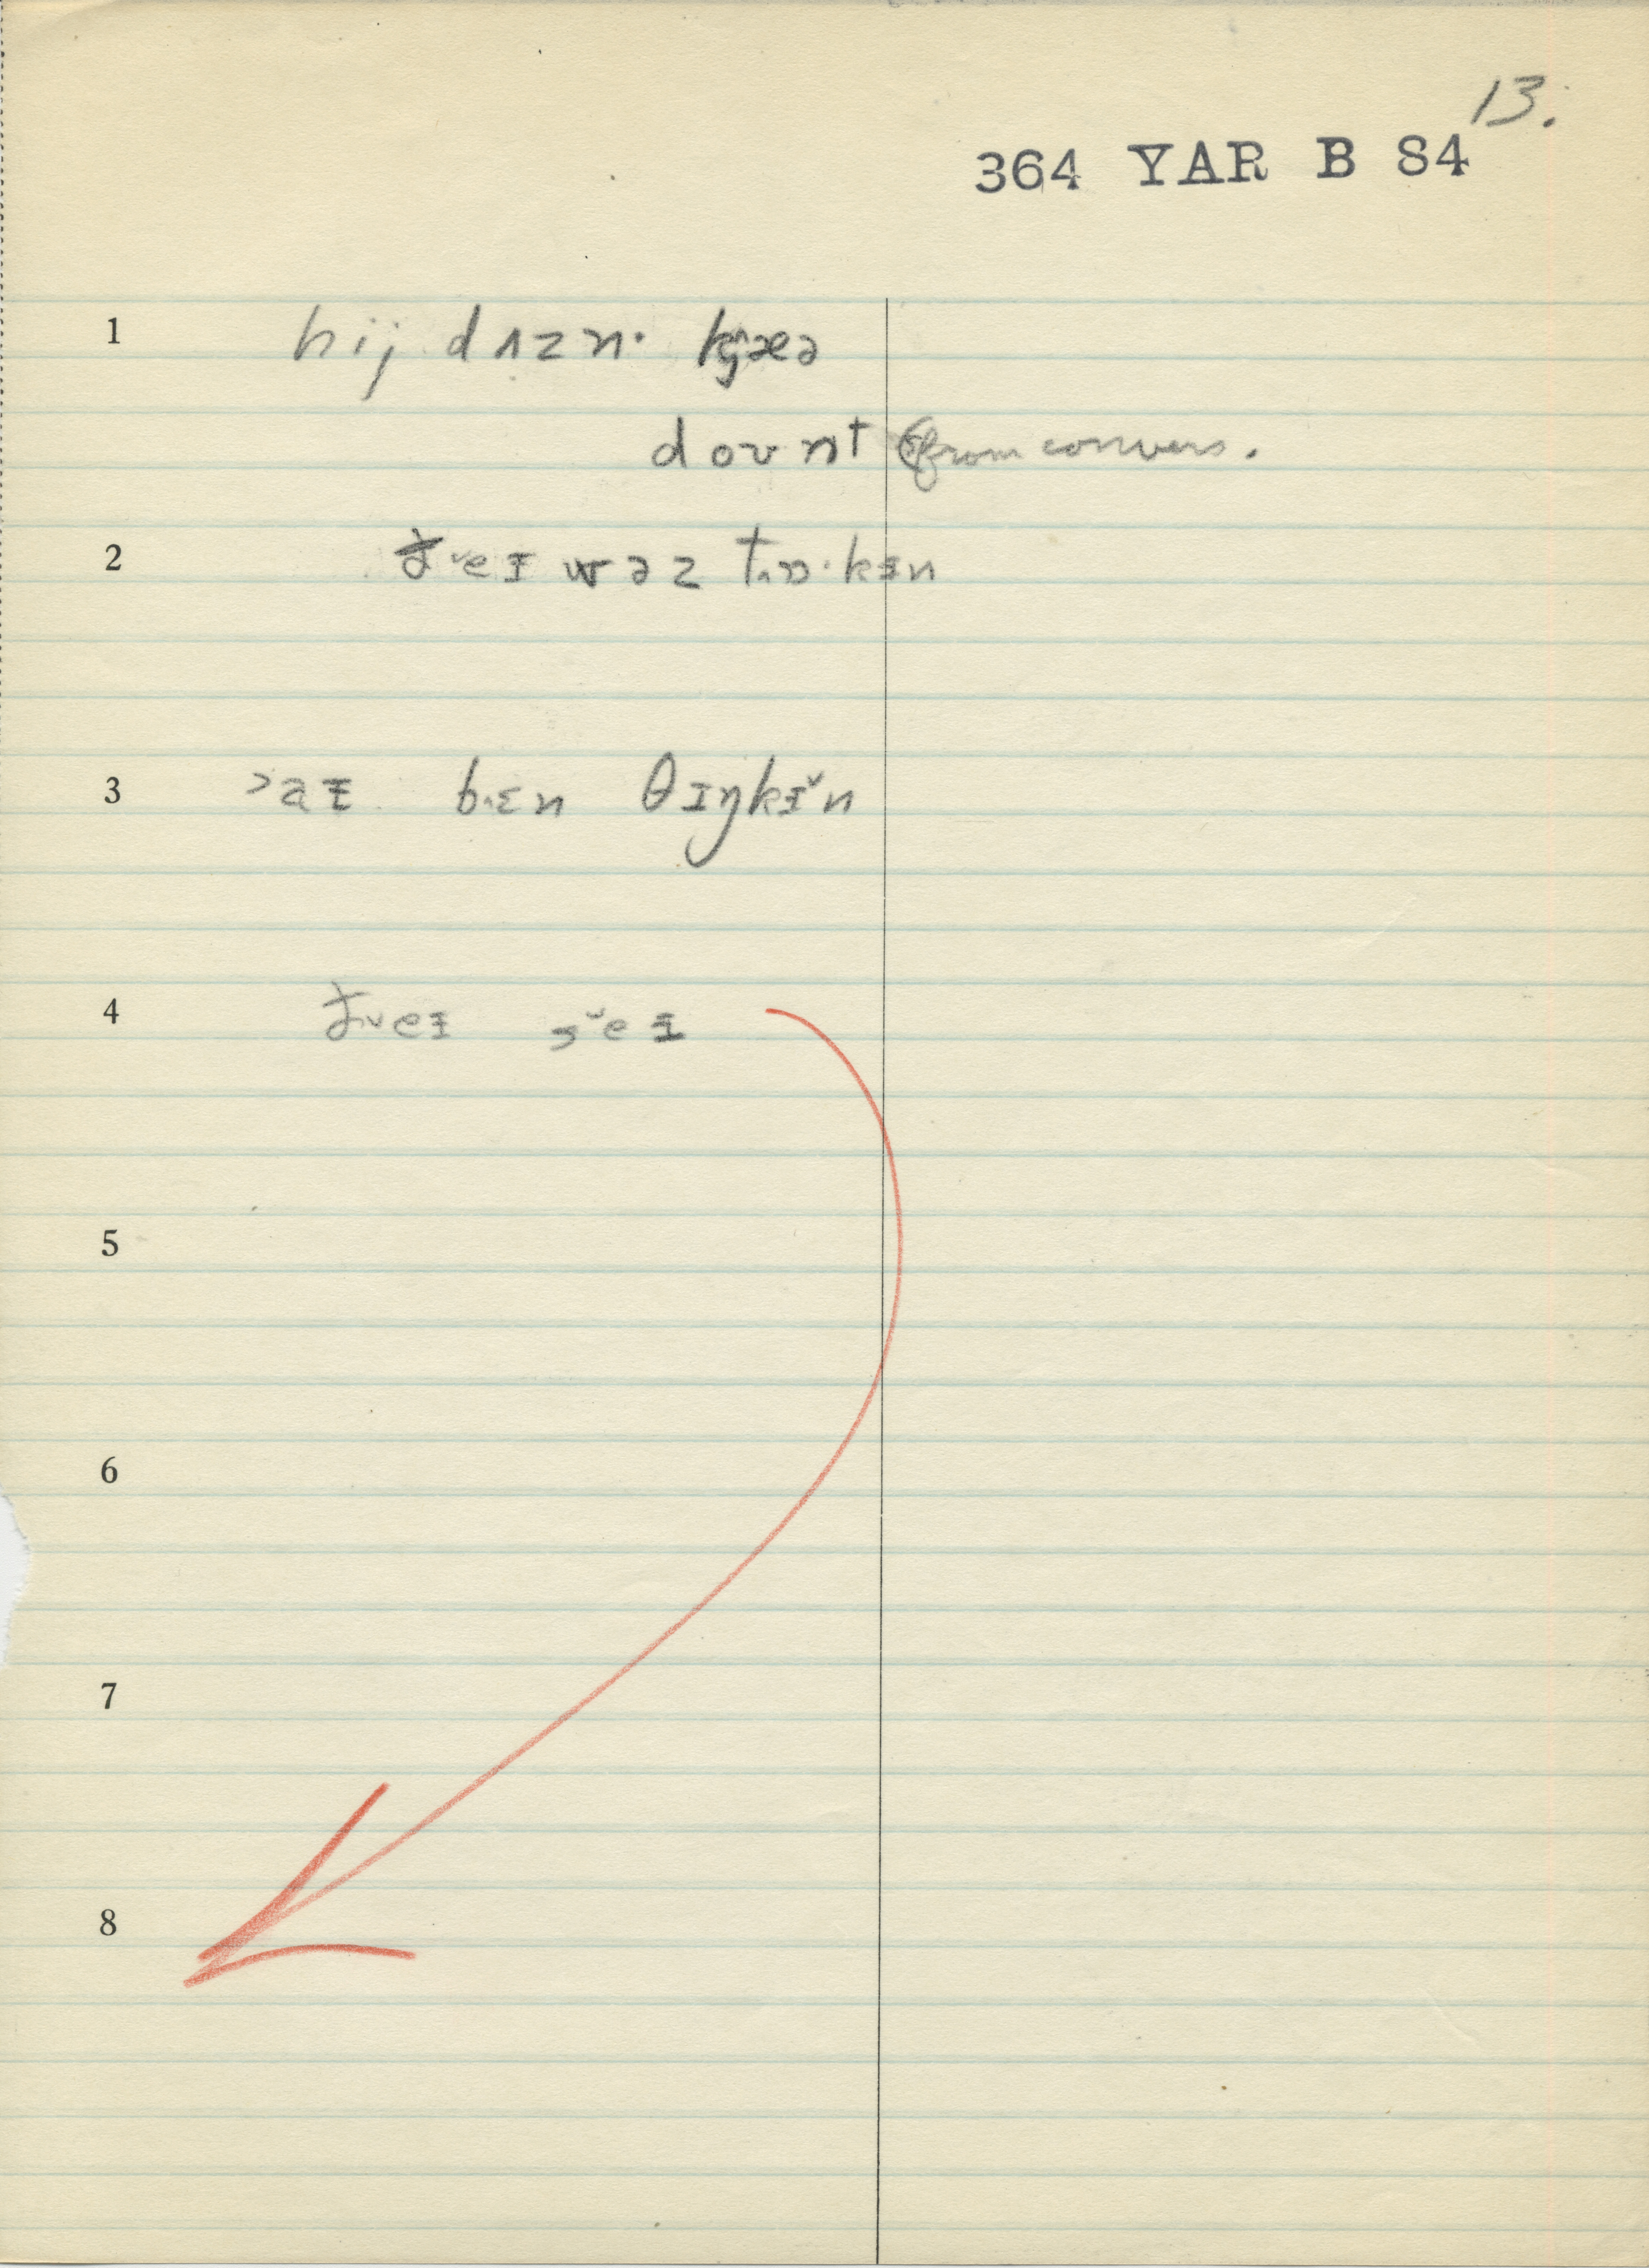 13.
364 YAR B S4
1 hij dʌzn· kjæə
doʊnt (from convers.
2 ð˅eɪ wəz tɒ·kɪn
3 >aɪ bɪn θɪŋkɪ˅n
4 ð˅eɪ s˅eɪ
5
6
7
8